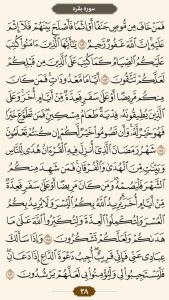 سوره بقره
فَمَنْ خَافَ مِن مُّوصٍ جَنَفًا أَوْ إِثْمًا فَأَصْلَحَ بَيْنَهُمْ فَلَا إِثْمَ
عَلَيْهِ إِنَّ اللَّهَ غَفُورٌ رَّحِيمٌ ١٨٢ يَا أَيُّهَا الَّذِينَ آمَنُوا كُتِبَ
عَلَيْكُمُ الصِّيَامُ كَمَا كُتِبَ عَلَى الَّذِينَ مِن قَبْلِكُمْ
لَعَلَّكُمْ تَتَّقُونَ ١٨٣ أَيَّامًا مَّعْدُودَاتٍ فَمَن كَانَ
مِنكُم مَّرِيضًا أَوْ عَلَى سَفَرٍ فَعِدَّةٌ مِّنْ أَيَّامٍ أُخَرَ وَعَلَى
الَّذِينَ يُطِيقُونَهُ فِدْيَةٌ طَعَامُ مِسْكِينٍ فَمَن تَطَوَّعَ خَيْرًا
فَهُوَ خَيْرٌ لَّهُ وَأَن تَصُومُوا خَيْرٌ لَّكُمْ إِن كُنتُمْ تَعْلَمُونَ
١٨٤ شَهْرُ رَمَضَانَ الَّذِي أُنزِلَ فِيهِ الْقُرْآنُ هُدًى لِّلنَّاسِ
وَبَيِّنَاتٍ مِّنَ الْهُدَى وَالْفُرْقَانِ فَمَن شَهِدَ مِنكُمُ
الشَّهْرَ فَلْيَصُمْهُ وَمَن كَانَ مَرِيضًا أَوْ عَلَى سَفَرٍ فَعِدَّةٌ
مِّنْ أَيَّامٍ أُخَرَ يُرِيدُ اللَّهُ بِكُمُ الْيُسْرَ وَلَا يُرِيدُ بِكُمُ
الْعُسْرَ وَلِتُكْمِلُوا الْعِدَّةَ وَلِتُكَبِّرُوا اللَّهَ عَلَى مَا
هَدَاكُمْ وَلَعَلَّكُمْ تَشْكُرُونَ ١٨٥ وَإِذَا سَأَلَكَ
عِبَادِي عَنِّي فَإِنِّي قَرِيبٌ أُجِيبُ دَعْوَةَ الدَّاعِ إِذَا دَعَانِ
فَلْيَسْتَجِيبُوا لِي وَلْيُؤْمِنُوا بِي لَعَلَّهُمْ يَرْشُدُونَ ١٨٦
٢٨